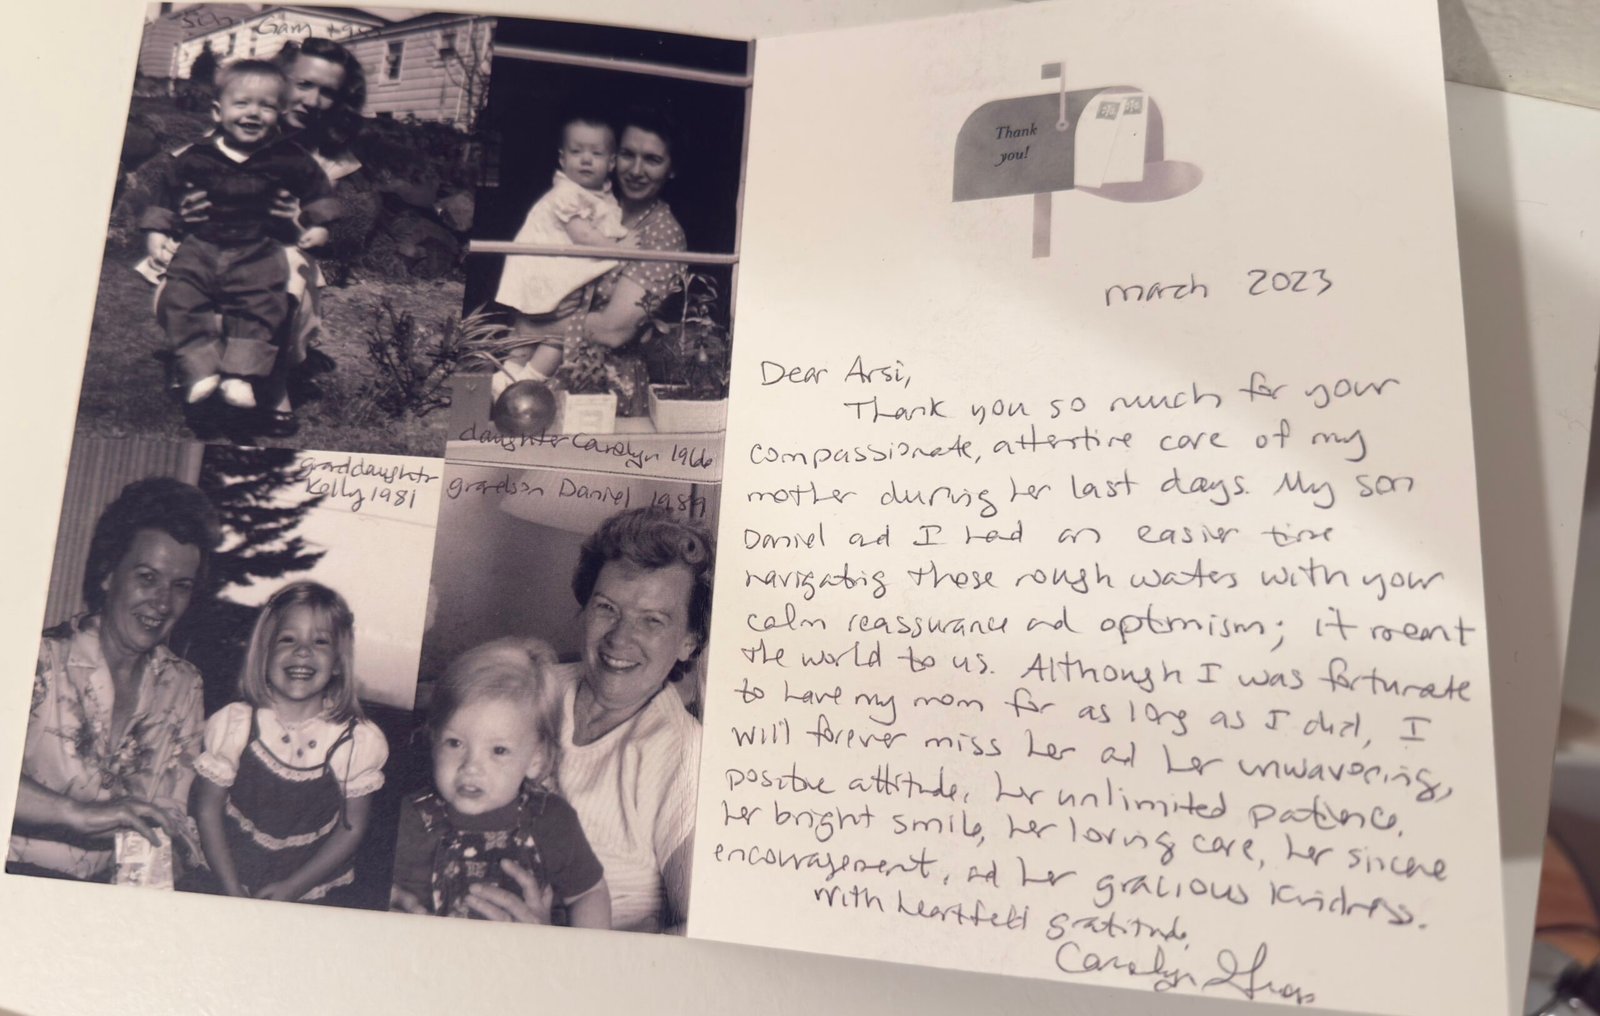 Gary
daughter Carolyn 1966
granddaughter
Kelly 1981
grandson Daniel 1989
Thank
you!
March 2023
Dear Arsi,
Thank you so much for your
compassionate, attentive care of my
mother during her last days. My son
Daniel and I had an easier time
navigating those rough waters with your
calm reassurance and optimism; it meant
the world to us. Although I was fortunate
to have my mom for as long as I did, I
will forever miss her and her unwavering,
positive attitude, her unlimited patience,
her bright smile, her loving care, her sincere
encouragement, and her gracious kindness.
With heartfelt gratitude,
Carolyn